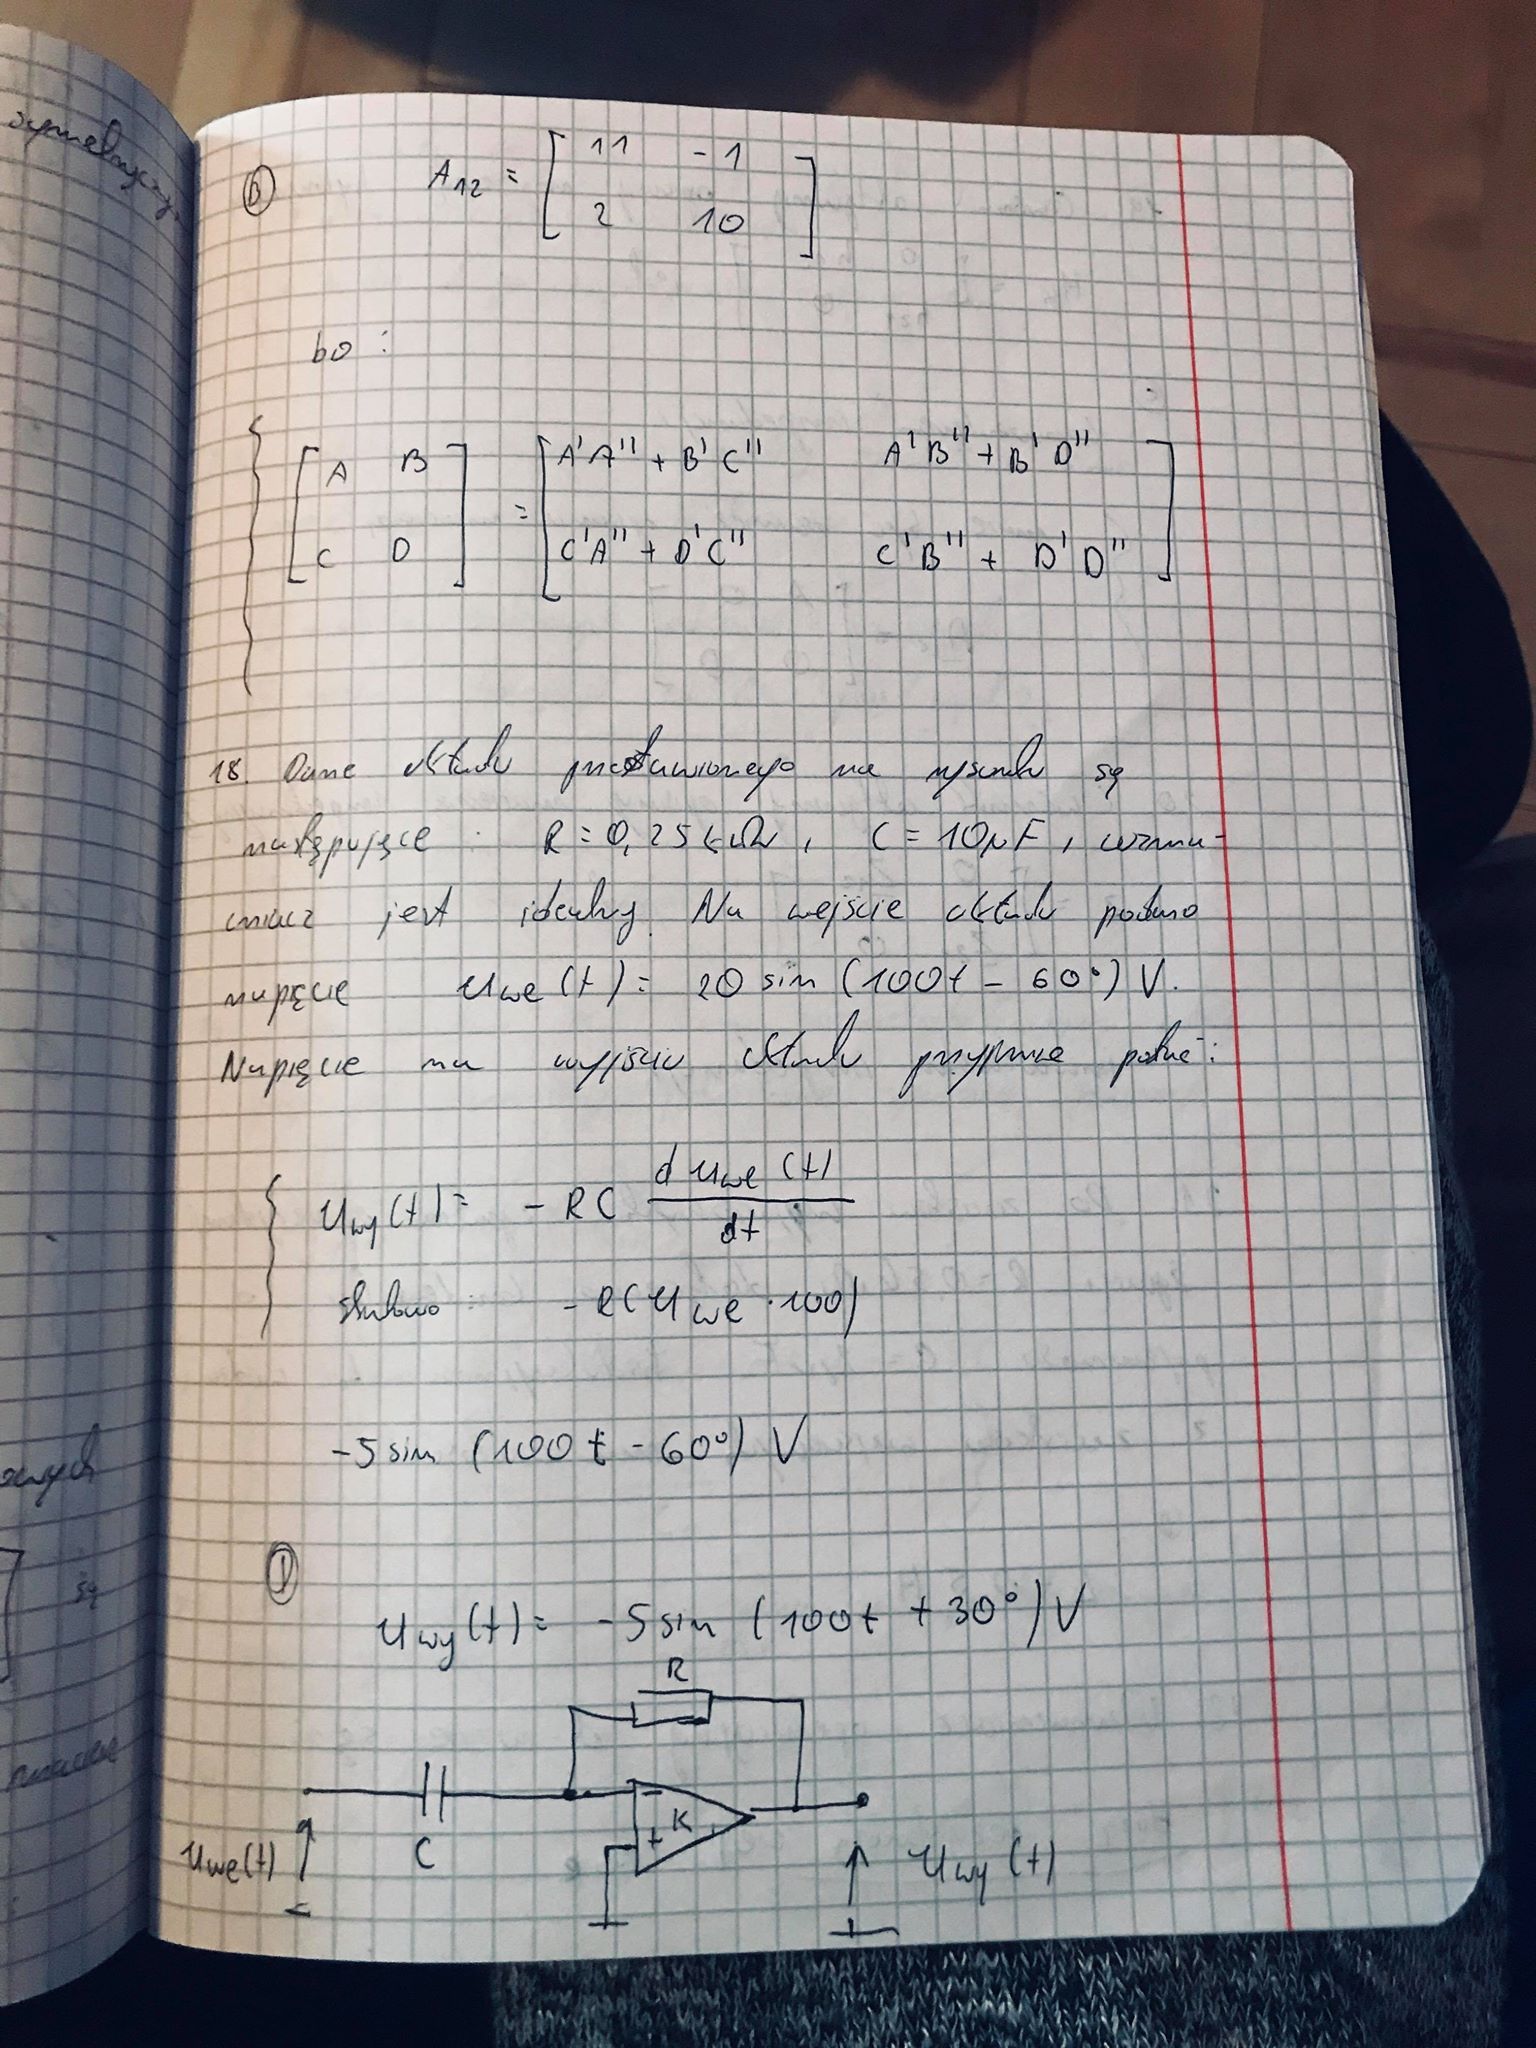 symetryczny
B A12 = [ 11 -1
2 10 ]
bo :
[ A B = [ A'A" + B'C" A'B" + B'D"
C D ] C'A" + D'C" C'B" + D'D" ]
18. Dane układu przedstawionego na rysunku są
następujące : R = 0,25 kΩ, C = 10μF, wzma-
cniacz jest idealny. Na wejście układu podano
napięcie uwe(t) = 20 sin (100t - 60°) V.
Napięcie na wyjściu układu przyjmuje postać:
uwy(t) = - RC d uwe (t) / dt
- RC(uwe · 100)
-5 sin (100 t - 60°) V
uwy(t) = -5 sin (100t + 30°) V
R
- K
+
C
uwe(t)
uwy (t)
są